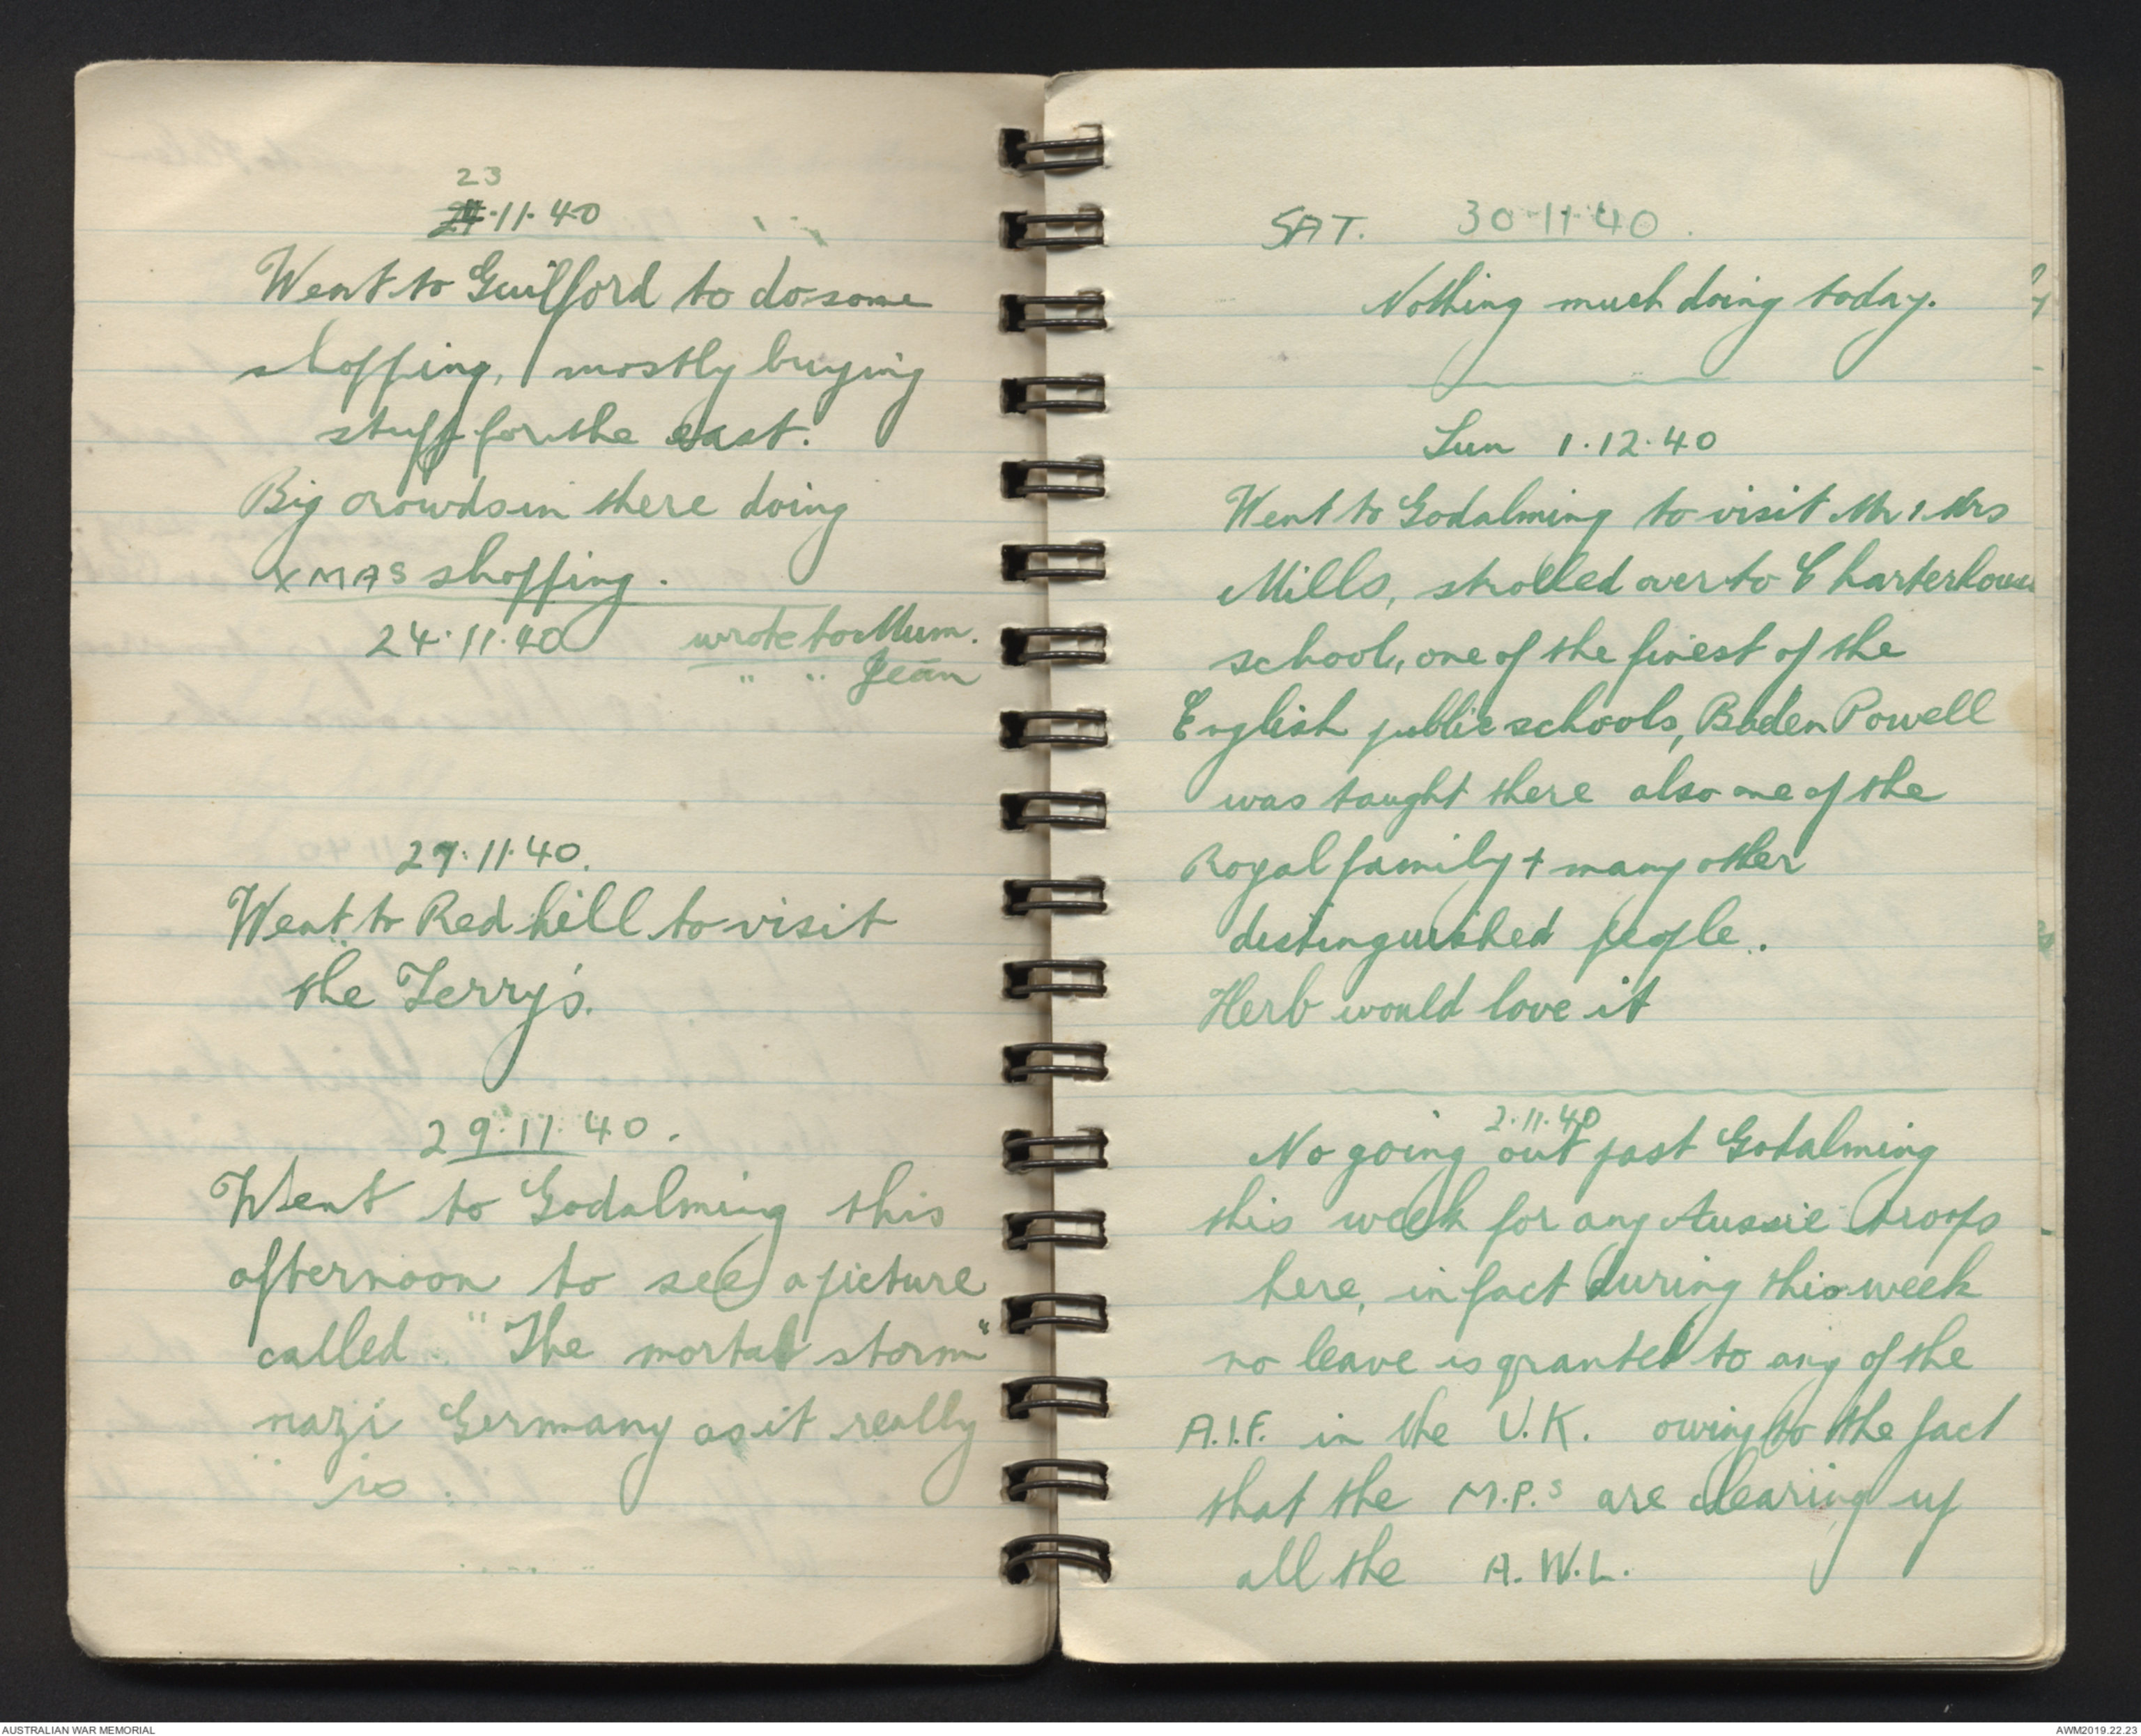 23
24.11.40
Went to Guilford to do some
shopping, mostly buying
stuff for the east.
Big crowds in there doing
XMAS shopping.
24.11.40 wrote to Mum.
" " Jean
27.11.40.
Went to Redhill to visit
the Terry's.
29.11.40.
Went to Godalming this
afternoon to see a picture
called "The mortal storm"
nazi Germany as it really
is.
SAT. 30.11.40.
Nothing much doing today.
Sun 1.12.40
Went to Godalming to visit Mr & Mrs
Mills, strolled over to Charterhouse
school, one of the finest of the
English public schools, Baden Powell
was taught there also one of the
Royal family + many other
distinguished people.
Herb would love it
2.11.40
No going out past Godalming
this week for any Aussie troops
here, in fact during this week
no leave is granted to any of the
A.I.F. in the U.K. owing to the fact
that the M.P.s are clearing up
all the A.W.L.
AUSTRALIAN WAR MEMORIAL
AWM2019.22.23